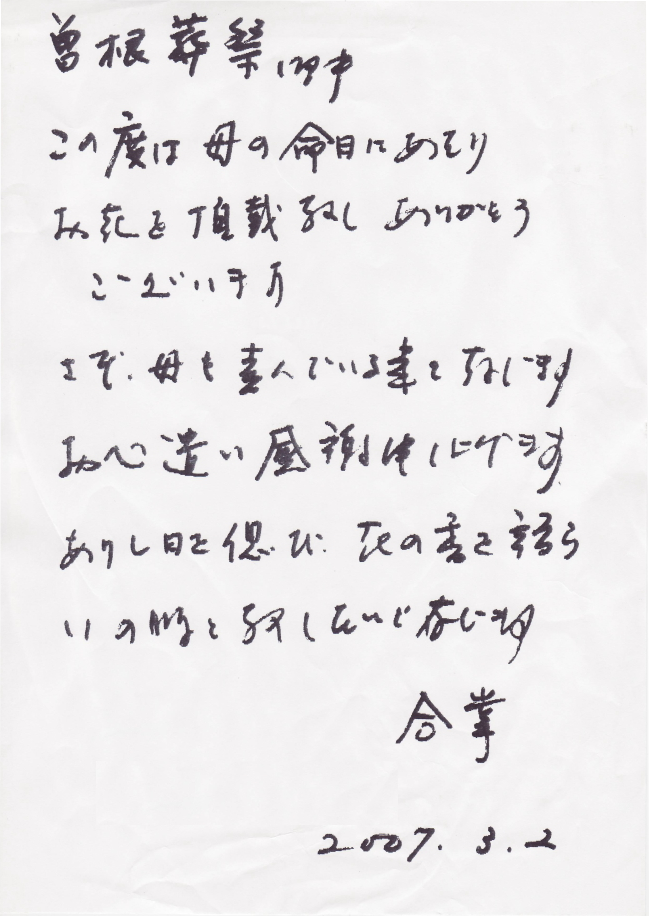 曽根葬祭御中
この度は母の命日にあたり
お花を頂戴致しありがとう
ございます
さぞ、母も喜んでいる事と存じます
お心遣い感謝申し上げます
ありし日を偲び、花の香を語ら
いの時と致したいと存じます
合掌
2007.3.2